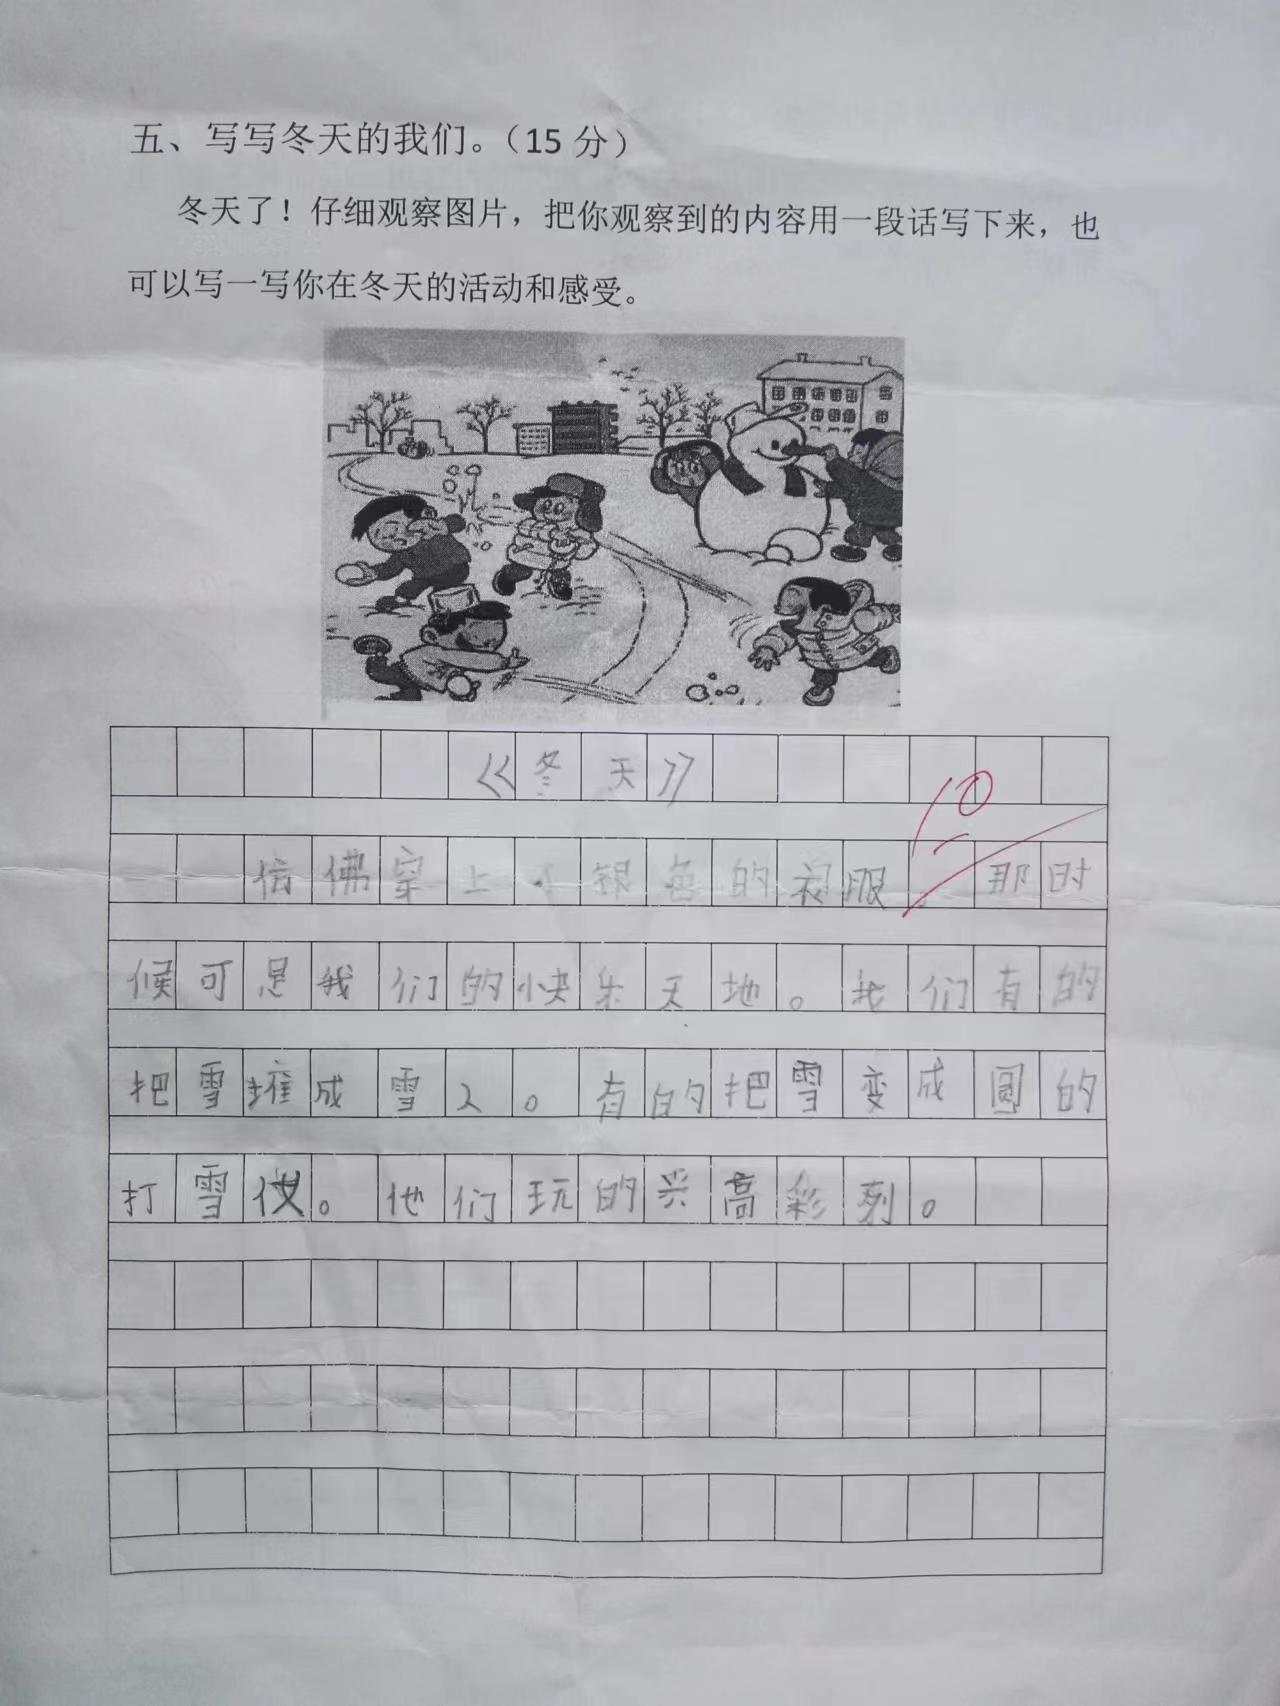 五、写写冬天的我们。（15 分）
冬天了！仔细观察图片，把你观察到的内容用一段话写下来，也
可以写一写你在冬天的活动和感受。
《冬天》
10
佛穿上银色的衣服。那时
候可是我们的快乐天地。我们有的
把雪堆成雪人。有的把雪变成圆的
打雪仗。他们玩的兴高彩列。